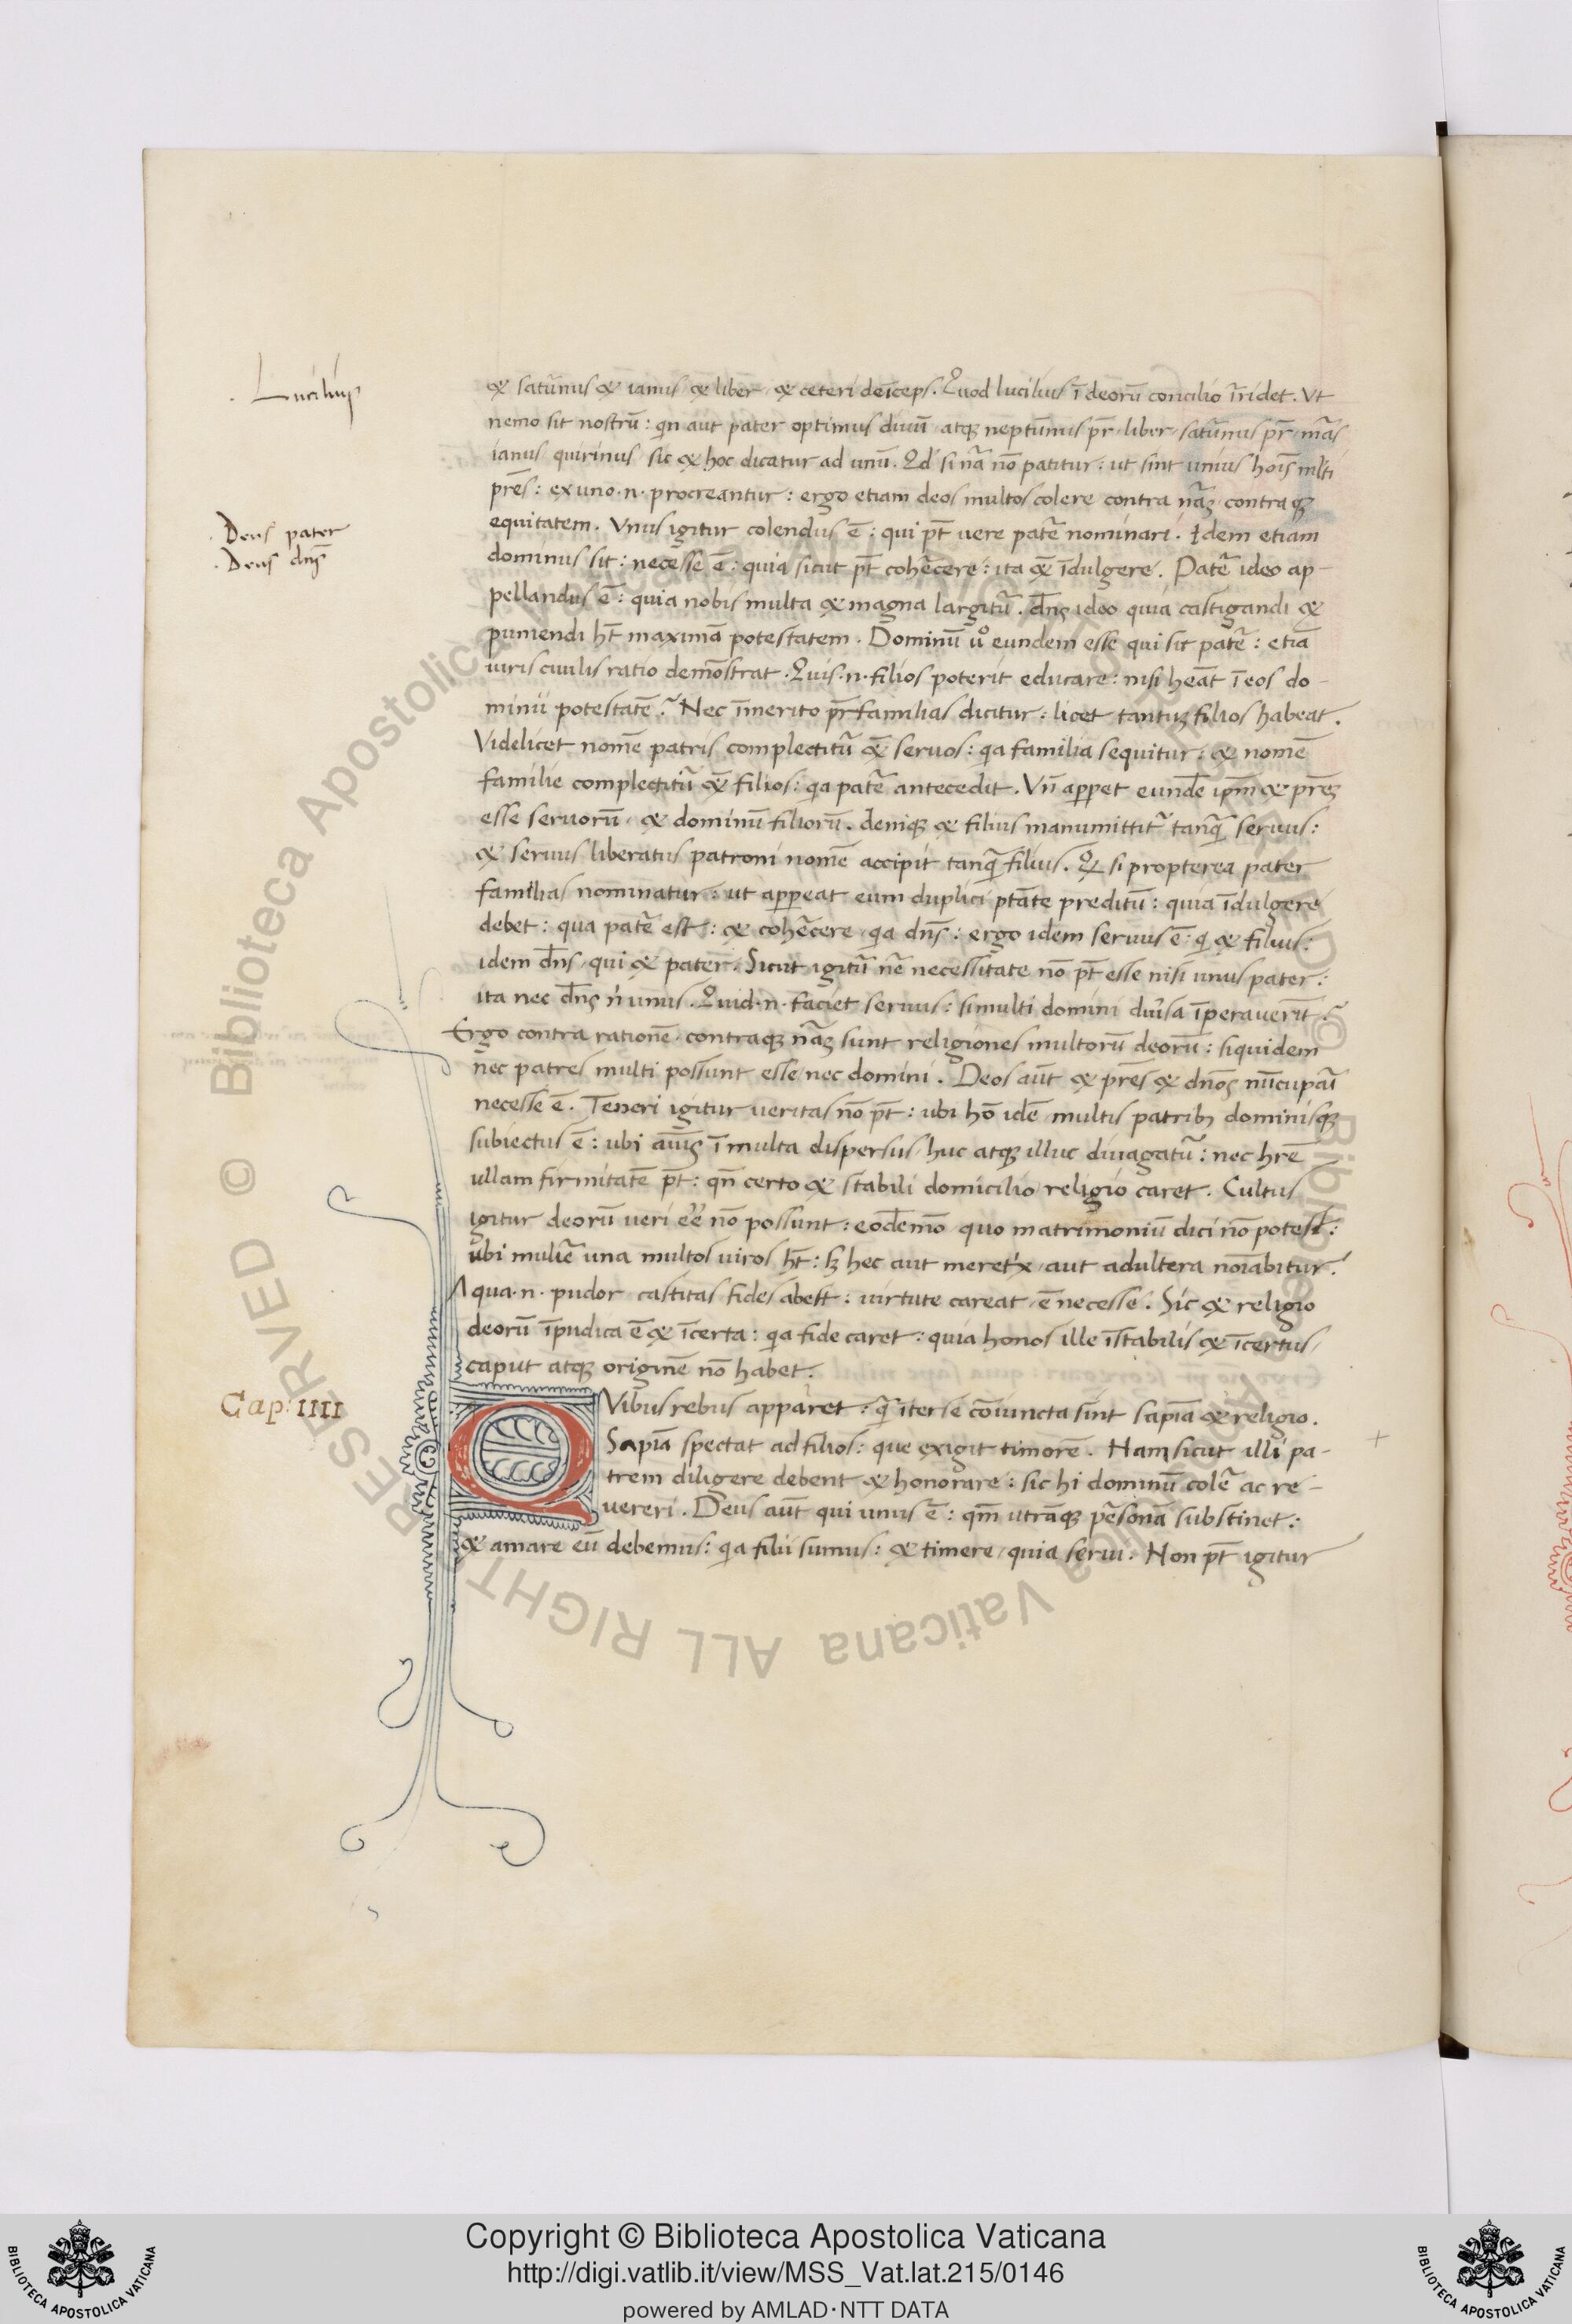 Lucilius
& satu᷑nus & ianus / & liber / & ceteri deīceps. Quod lucilius ī deorū concilio īridet. Vt
nemo sit nostrū : qn aut pater optimus diuū / atqꝫ neptūnus pr̄ / liber / satu᷑nus pr̄ / mãs
ianus quirinus / sic & hoc dicatur ad unū. Qd si nã nō patitur : ut sint unius hoīs mlti
pr̄es : ex uno .n. procreantur : ergo etiam deos multos colere contra nãꝫ / contra qꝫ
Deus pater
equitatem. Vnus igitur colendus ē : qui pt̄ uere patr̄e nominari. Idem etiam
Deus dn̄s
dominus sit : necesse ē : quia sicut pt̄ cohe᷑cere : ita & ē īdulgere. Patr̄e ideo ap-
pellandus ē : quia nobis multa & magna largitu᷑. dn̄s ideo quia castigandi &
puniendi ht̄ maximā potestatem. Dominū ỽo eundem esse qui sit pat᷑e : etiā
iuris ciuilis ratio demōstrat. Quis .n. filios poterit educare : nisi heāt ī eos do-
minii potestatē ? Nec īmerito pr̄familias dicitur : licet tantuꝫ filios habeat.
Videlicet nomē patris complectitu᷑ & ē seruos : qa familia sequitur : & nomē
familie complectitu᷑ & ē filios : qa pat᷑e antecedit. Vn̄ appet eundē ipm̄ & pr̄eꝫ
esse seruorū / & dominū filiorū. deniqꝫ & filius manumittit᷑ tanqꝫ seruus :
& seruus liberatus patroni nomē accipit tanqꝫ filius. Q si propterea pater
familias nominatur : ut appeat eum duplici ptāte preditū : quia īdulgere
debet : qua pat᷑e est : & cohe᷑cere / qa dn̄s : ergo idem seruus ē : q & filius :
idem dn̄s / qui & pater. Sicut igitu᷑ nē necessitate nō pt̄ esse nisi unus pater :
ita nec dn̄s n unus. Quid .n. faciet seruus : si multi domini diu᷑sa īperauerīt ?
Ergo contra rationē / contraqꝫ nãꝫ sunt religiones multorū deorū : siquidem
nec patres multi possunt esse / nec domini. Deos aūt & pr̄es & dn̄os nūcupai᷑
necesse ē. Teneri igitur ueritas nō pt̄ : ubi hō idē multis patribꝫ dominisqꝫ
subiectus ē : ubi aīus ī multa dispersus / huc atqꝫ illuc diuagatu᷑ : nec hr̄e
ullam firmitatē pt̄ : qn̄ certo & stabili domicilio religio caret. Cultus
igitur deorū ueri eē nō possunt : eodēmō / quo matrimoniū dici nō potest :
ubi mulie᷑ una multos uiros ht̄ : sꝫ hec aut meret᷑x / aut adultera noīabitur.
A qua .n. pudor castitas fides abest : uirtute careat / ē necesse. Sic & religio
deorū īpudica ē & īcerta : qa fide caret : quia honos ille īstabilis & īcertus /
caput atqꝫ originē nō habet.
Cap. IIII
QVibus rebus apparet : q īter se cōiuncta sint sapīa & religio.
Sapīa spectat ad filios : que exigit timorē. Nam sicut illi pa-
trem diligere debent & honorare : sic hi dominū cole᷑ ac re-
uereri. Deus aūt qui unus ē : qm̄ utrāqꝫ p᷑sonā substinet :
& amare eū debemus : qa filii sumus : & timere / quia serui. Non pt̄ igitur
Copyright © Biblioteca Apostolica Vaticana
http://digi.vatlib.it/view/MSS_Vat.lat.215/0146
powered by AMLAD·NTT DATA
BIBLIOTECA APOSTOLICA VATICANA
BIBLIOTECA APOSTOLICA VATICANA
© Biblioteca Apostolica Vaticana ALL RIGHTS RESERVED